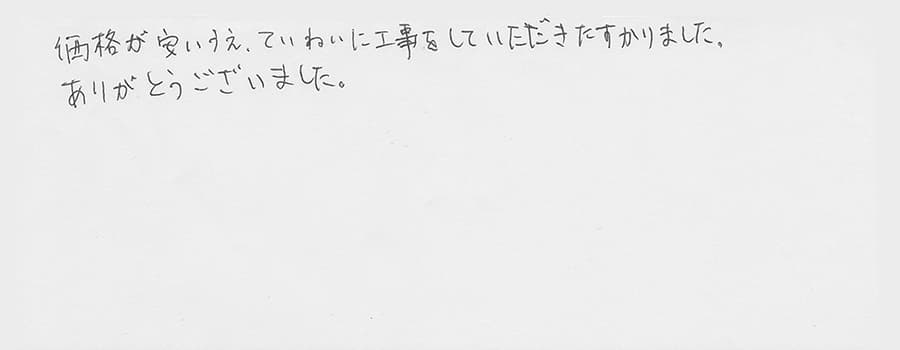 価格が安いうえ、ていねいに工事をしていただきたすかりました。
ありがとうございました。